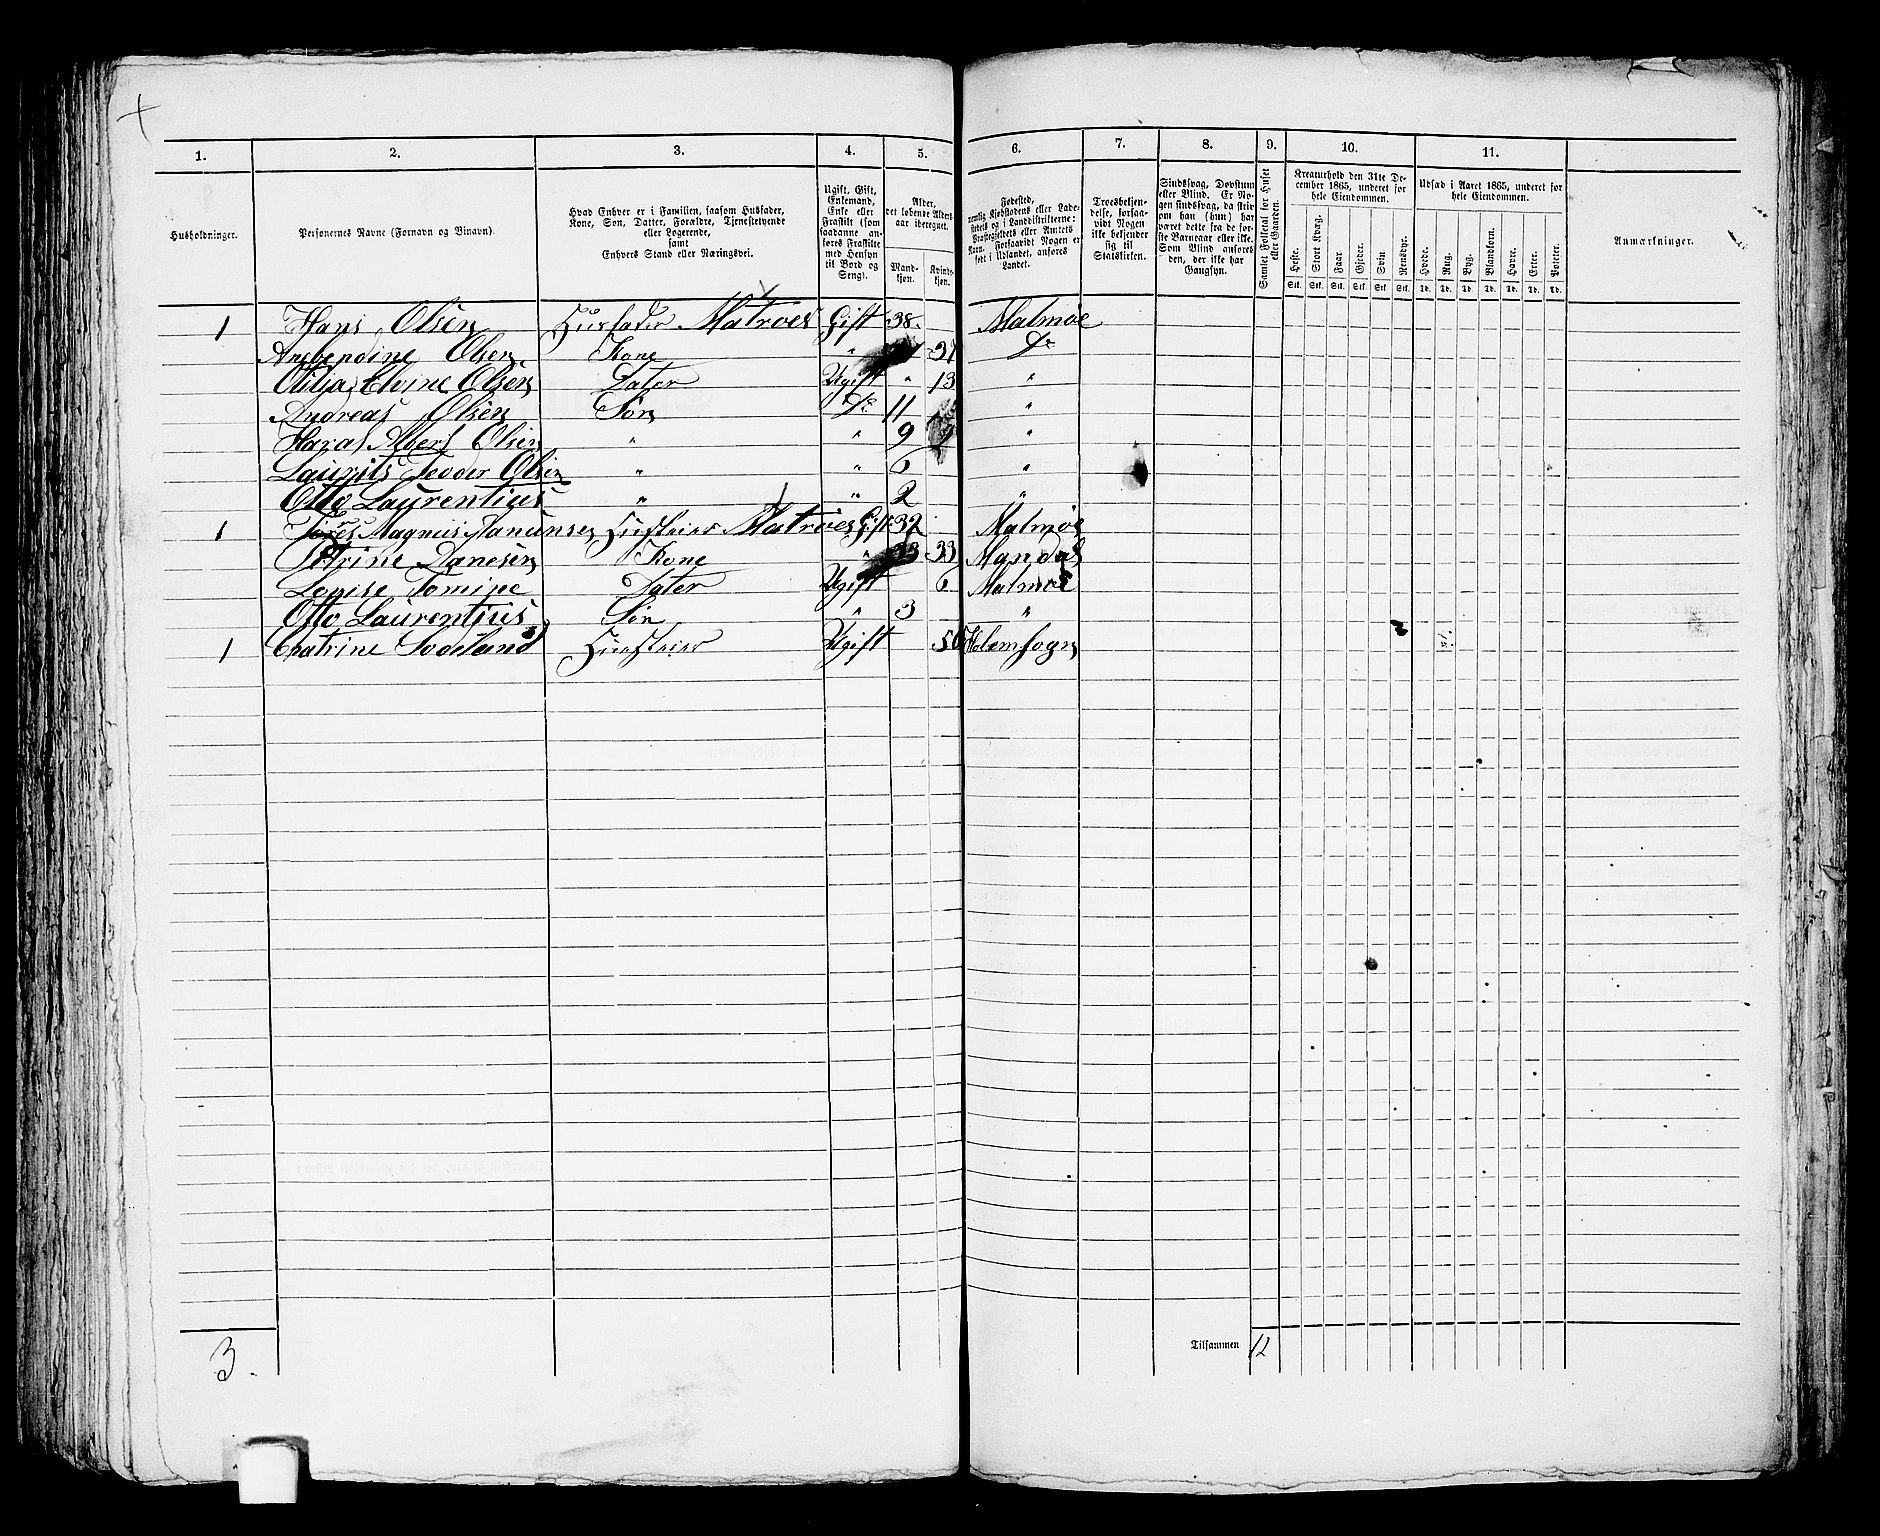 1. 2. 3. 4. 5. 6. 7. 8. 9. 10. 11.
Husholdninger.
Personernes Navne (Fornavn og Binavn).
Hvad Enhver er i Familien, saasom Husfader,
Kone, Søn, Datter, Forældre, Tjenestetyende
eller Logerende,
samt
Enhvers Stand eller Næringsvei.
Ugift, Gift,
Enkemand,
Enke eller
Fraskilt (som
saadanne an-
føres Fraskilte
med Hensyn
til Bord og
Seng).
Alder,
det løbende Alders-
aar iberegnet.
Mand-
kjøn.
Kvinde-
kjøn.
Fødested,
nemlig Kjøbstadens eller Lade-
stedets og i Landdistrikterne:
Præstegjeldets eller Amtets
Navn. Forsaavidt Nogen er
født i Udlandet, anføres
Landet.
Troesbekjen-
delse, forsaa-
vidt Nogen
ikke bekjender
sig til
Statskirken.
Sindssvag, Døvstum
eller Blind. Er No-
gen sindssvag, da skri-
ves om han (hun) har
været dette fra de før-
ste Barneaar eller ikke.
Som Blind anføres
den, der ikke har
Gangsyn.
Samlet Folketal for Huset
eller Gaarden.
Kreaturhold den 31te De-
cember 1865, underet for
hele Eiendommen.
Heste. Stort Kvæg. Faar. Gjeder. Svin. Rensdyr.
Stk. Stk. Stk. Stk. Stk. Stk.
Udsæd i Aaret 1865, underet for
hele Eiendommen.
Hvede. Rug. Byg. Blandkorn. Havre. Erter. Poteter.
Td. Td. Td. Td. Td. Td. Td.
Anmærkninger.
1 Hans Olsen Husfader Matroes Gift 38. Malmøe
Olsen Kone " 37 Do
Elvine Olsen Dater Ugift " 13 "
Andreas Olsen Søn Do 11 "
Albert Olsen " " 9 "
Laurits Tevder Olsen " " 6 "
Otto Laurentius " " 2 "
1 Magnus Matroes Gift 32 Malmøe
Petrine Danesen Kone " 33 Mandal
Lovise Tomine Dater Ugift 6 Malmøe
Otto Laurentius Søn " 3 "
1 Ugift 50 Holemsogn
3. Tilsammen 12